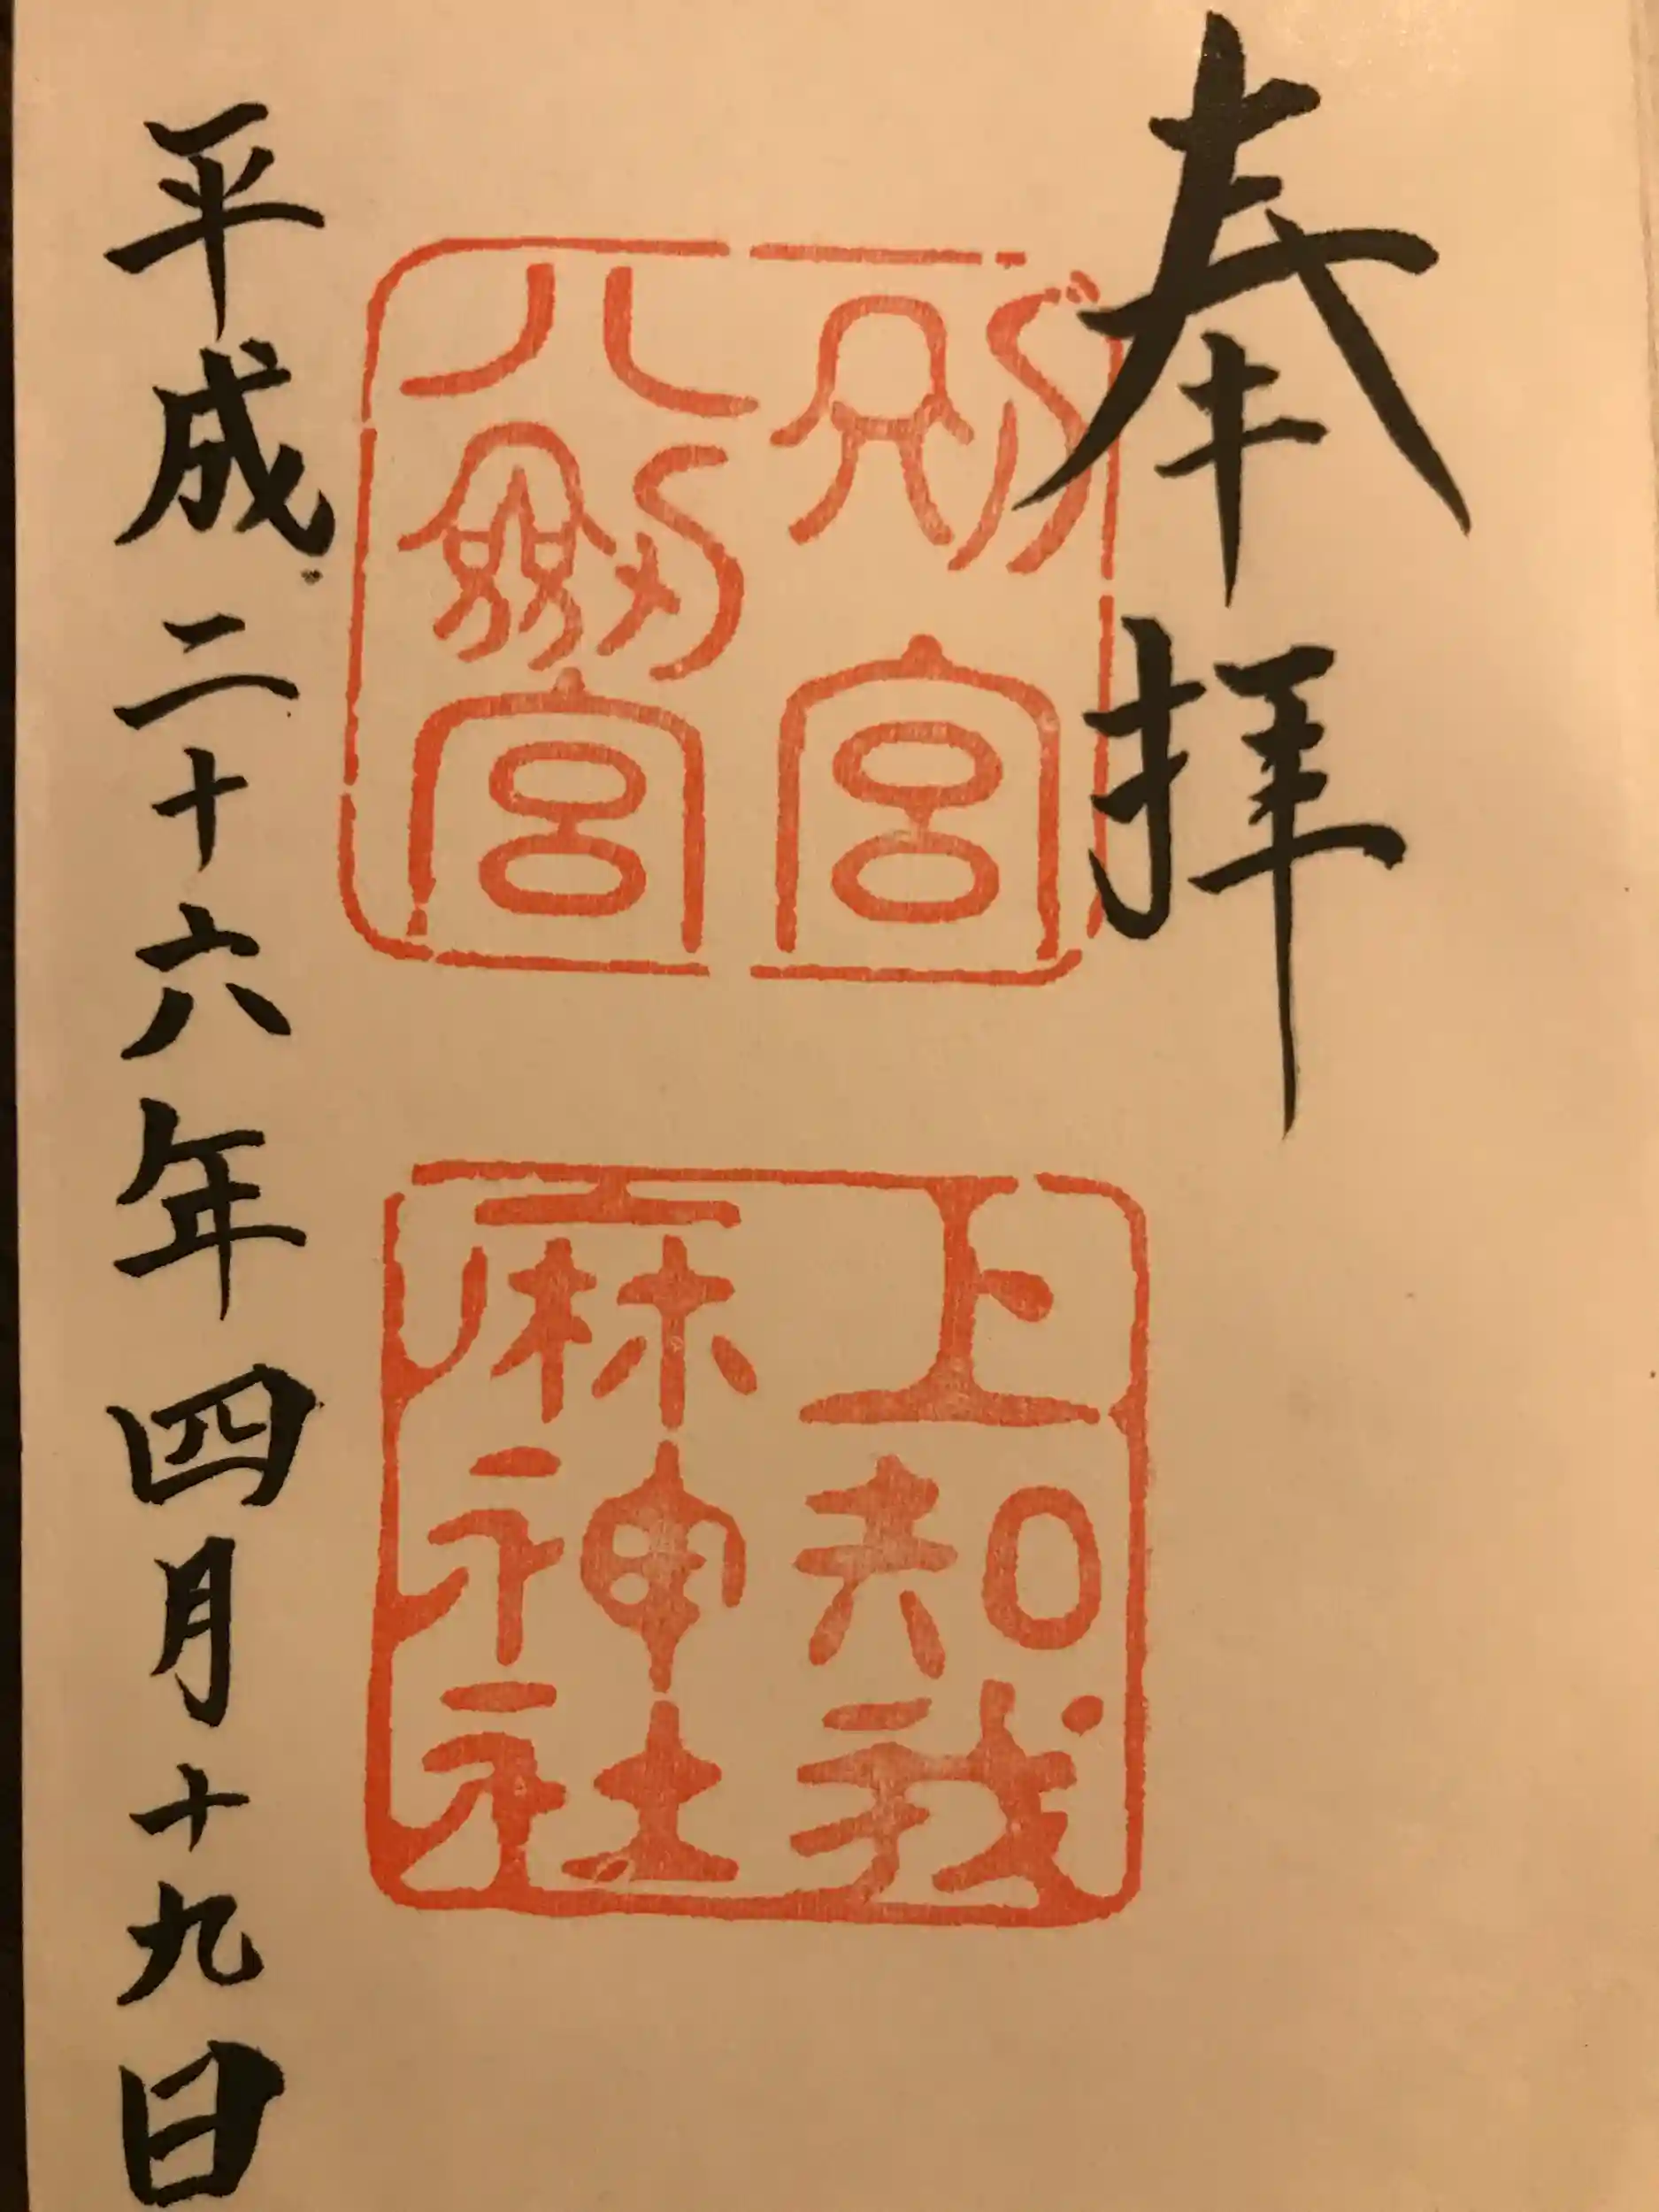 奉拝
別宮
八剱宮
上知我
麻神社
平成二十六年四月十九日